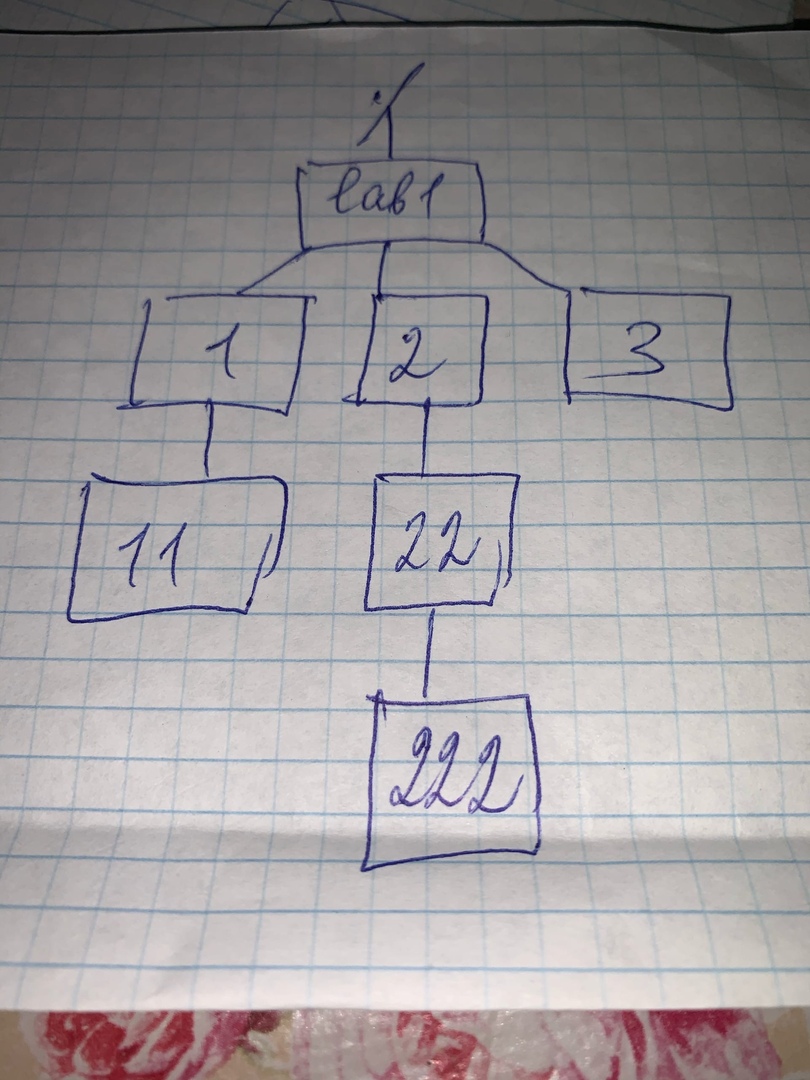 /
lab1
1 2 3
11 22
222